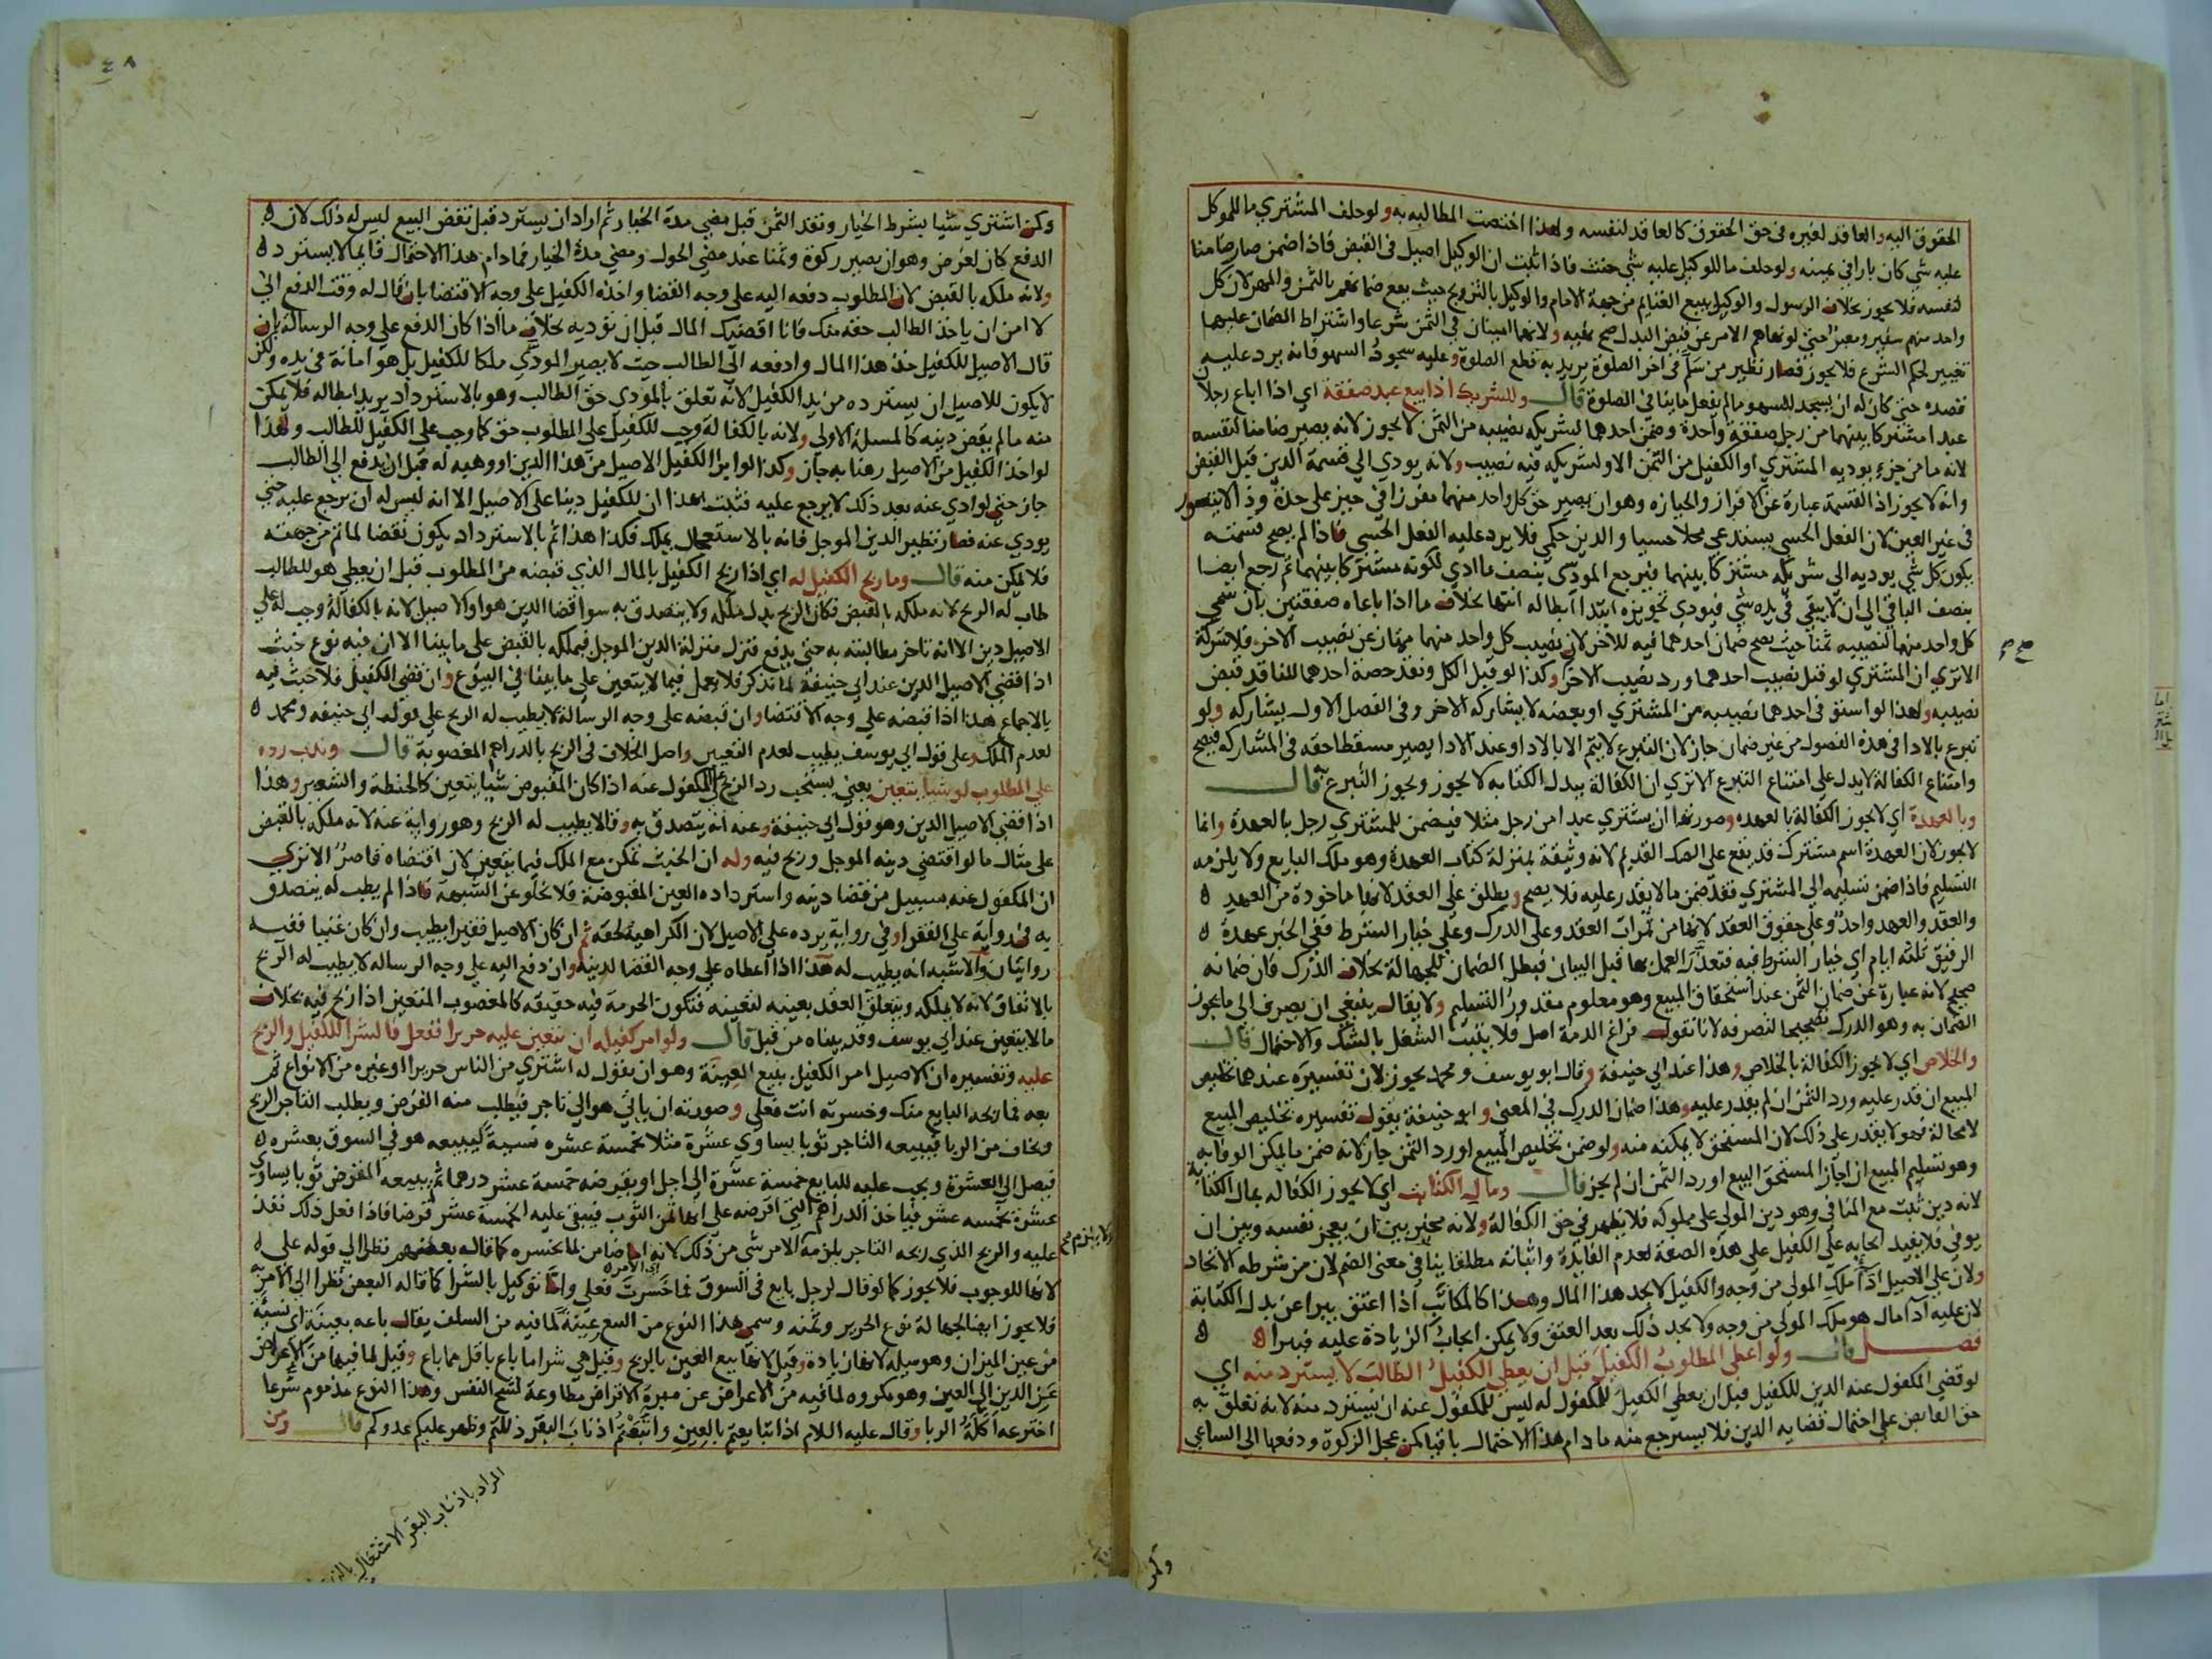 الحقوق اليه والعاقد لغيره في حق الحقوق كالعاقد لنفسه ولهذا اختصت المطالبه به ولو حلف المشتري ما للموكل
عليه شي كان بارا في يمينه ولو حلف ما للوكيل عليه شي حنث فاذا ثبت ان الوكيل اصيل في القبض فاذا ضمن صار ضامنا
لنفسه فلا يجوز بخلاف الرسول والوكيل ببيع الغنايم من جهة الامام والوكيل بالتزويج حيث يصح ضمانهم بالثمن والمهر لان كل
واحد منهم سفير ومعبر حتى لو نهاهم الامر عن قبض البدل صح نهيه ولانهما امينان في الثمن شرعا واشتراط الضمان عليهما
تغيير لحكم الشرع فلا يجوز فصار نظير من سلم في اخر الصلوة يريد به قطع الصلوة وعليه سجود السهو فانه يرد عليه
قصده حتى كان له ان يسجد للسهو ما لم يفعل ما ينافي الصلوة قال وللشريك اذا بيع عبد صفقة اي اذا اباع رجلان
عبدا مشتركا بينهما من رجل صفقة واحدة وضمن احدهما لشريكه نصيبه من الثمن لا يجوز لانه يصير ضامنا لنفسه
لانه ما من جزء يوديه المشتري او الكفيل من الثمن الا ولشريكه فيه نصيب ولانه يودي الى قسمة الدين قبل القبض
وانه لا يجوز اذ القسمة عبارة عن الافراز والحيازه وهو ان يصير حق كل واحد منهما مفرزا في حيز على حدة وذا لا يتصور
في غير العين لان الفعل الحسي يستدعي محلا حسيا والدين حكمي فلا يرد عليه الفعل الحسي فاذا لم يصح قسمته
يكون كل شي يوديه الى شريكه مشتركا بينهما فيرجع المودى بنصف ما ادي لكونه مشتركا بينهما ثم يرجع ايضا
بنصف الباقي الى ان لا يبقى في يده شي فيودي تجويزه ابتدا الى ابطاله انتها بخلاف ما اذا باعاه صفقتين بان سمى
كل واحد منهما لنصيبه ثمنا حيث يصح ضمان احدهما فيه للاخر لان نصيب كل واحد منهما ممتاز عن نصيب الاخر فلا شركة
الا ترى ان المشتري لو قبل نصيب احدهما ورد نصيب الاخر وكذا لو قبل الكل ونقد حصة احدهما للناقد قبض
نصيبه ولهذا لو استوفى احدهما نصيبه من المشتري او بعضه لا يشاركه الاخر وفي الفصل الاول يشاركه ولو
تبرع بالادا في هذه الفصول من غير ضمان جاز لان التبرع لا يتم الا بالادا وعند الادا يصير مسقطا حقه في المشاركه فيصح
وامتناع الكفالة لا يدل على امتناع التبرع الا ترى ان الكفالة ببدل الكتابه لا يجوز ويجوز التبرع به قال
وبالعهدة اي لا يجوز الكفالة بالعهده وصورتها ان يشتري عبدا من رجل مثلا فيضمن للمشتري رجل بالعهدة وانما
لا يجوز لان العهدة اسم مشترك قد يقع على الصك القديم لانه وثيقة بمنزلة كتاب العهدة وهو ملك البايع ولا يلزمه
التسليم فاذا ضمن تسليمه الى المشتري فقد ضمن ما لا يقدر عليه فلا يصح ويطلق على العقد لانها ماخودة من العهد
والعقد والعهد واحد وعلى حقوق العقد لانها من ثمرات العقد وعلى الدرك وعلى خيار الشرط ففي الخبر عهدة
الرقيق ثلثة ايام اي خيار الشرط فيه فتعذر العمل بها قبل البيان فبطل الضمان للجهالة بخلاف الدرك فان ضمانه
صحيح لانه عبارة عن ضمان الثمن عند استحقاق المبيع وهو معلوم مقدور التسليم ولا يقال ينبغي ان يصرف الى ما يجوز
الضمان به وهو الدرك تصحيحا لتصرفه لانا نقول فراغ الذمة اصل فلا يثبت الشغل بالشك والاحتمال قال
والخلاص اي لا يجوز الكفالة بالخلاص وهذا عند ابي حنيفة وقال ابو يوسف ومحمد يجوز لان تفسيره عندهما تخليص
المبيع ان قدر عليه ورد الثمن ان لم يقدر عليه وهذا ضمان الدرك في المعنى وابو حنيفة يقول تفسيره تخليص المبيع
لا محالة فهو لا يقدر على ذلك لان المستحق لا يمكنه منه ولو ضمن تخليص المبيع او رد الثمن جاز لانه ضمن ما يمكن الوفا به
وهو تسليم المبيع ان اجاز المستحق البيع او رد الثمن ان لم يجز قال ومال الكتابة اي لا يجوز الكفاله بمال الكتابة
لانه دين ثبت مع المنافي وهو دين المولى على مملوكه فلا يظهر في حق الكفالة ولانه مخير بين ان يعجز نفسه وبين ان
يوفي فلا يفيد ايجابه على الكفيل على هذه الصفة لعدم الفايدة واثباته مطلقا ينافي معنى الضم لان من شرطه الاتحاد
ولان على الاصيل اذا ملك المولى من وجه والكفيل لا يجد هذا المال وهذا كالمكاتب اذا اعتق يبرا عن بدل الكتابة
لان عليه ادا مال هو ملك المولى من وجه ولا يجد ذلك بعد العتق ولا يمكن ايجاب الزيادة عليه فيبرا
فصل قال ولو اعطى المطلوب الكفيل قبل ان يعطي الكفيل الطالب لا يسترد منه اي
لو قضى المكفول عنه الدين للكفيل قبل ان يعطي الكفيل للمكفول له ليس للمكفول عنه ان يسترد منه لانه تعلق به
حق القابض على احتمال قضايه الدين فلا يسترجع منه ما دام هذا الاحتمال باقيا كمن عجل الزكوة ودفعها الى الساعي
وكمن
صح م
٤٨
وكمن اشتري شيا بشرط الخيار ونقد الثمن قبل مضي مدة الخيار ثم اراد ان يسترد قبل نقض البيع ليس له ذلك لان
الدفع كان لغرض وهو ان يصير زكوة وثمنا عند مضي الحول ومضي مدة الخيار فما دام هذا الاحتمال قايما لا يسترده
ولانه ملكه بالقبض لان المطلوب دفعه اليه على وجه القضا واخذه الكفيل على وجه الاقتضا بان قال له وقت الدفع اني
لا امن ان ياخذ الطالب حقه منك فانا اقضيك المال قبل ان توديه بخلاف ما اذا كان الدفع على وجه الرسالة بان
قال الاصيل للكفيل خذ هذا المال وادفعه الى الطالب حيث لا يصير المودى ملكا للكفيل بل هو امانة في يده ولكن
لا يكون للاصيل ان يسترده من يد الكفيل لانه تعلق بالمودى حق الطالب وهو بالاسترداد يريد ابطاله فلا يمكن
منه ما لم يقض دينه كالمسئلة الاولى ولانه بالكفالة وجب للكفيل على المطلوب حق كما وجب على الكفيل للطالب ولهذا
لو اخذ الكفيل من الاصيل رهنا به جاز وكذا لو ابرا الكفيل الاصيل من هذا الدين او وهبه له قبل ان يدفع الى الطالب
جاز حتى لو ادى عنه بعد ذلك لا يرجع عليه فثبت بهذا ان للكفيل دينا على الاصيل الا انه ليس له ان يرجع عليه حتى
يودي عنه فصار نظير الدين الموجل فانه بالاستعجال يملك فكذا هذا ثم بالاسترداد يكون نقضا لما تم من جهته
فلا يمكن منه قال وما ربح الكفيل له اي اذا ربح الكفيل بالمال الذي قبضه من المطلوب قبل ان يعطي هو للطالب
طاب له الربح لانه ملكه بالقبض فكان الربح بدل ملكه ولا يتصدق به سوا قضا الدين هو او الاصيل لانه بالكفالة وجب له على
الاصيل دين الا انه تاخر مطالبته به حتى يدفع فنزل منزلة الدين الموجل فيملكه بالقبض على ما بينا الا ان فيه نوع خبث
اذا قضى الاصيل الدين عند ابي حنيفة لما نذكر فلا يعمل فيما لا يتعين على ما بينا في البيوع وان قضى الكفيل فلا خبث فيه
بالاجماع هذا اذا قبضه على وجه الاقتضا وان قبضه على وجه الرسالة لا يطيب له الربح على قول ابي حنيفه ومحمد
لعدم الملك وعلى قول ابي يوسف يطيب لعدم التعيين واصل الخلاف في الربح بالدراهم المغصوبة قال وندب رده
على المطلوب لو شيا يتعين يعني يستحب رد الربح على المكفول عنه اذا كان المقبوض شيا يتعين كالحنطة والشعير وهذا
اذا قضى الاصيل الدين وهو قول ابي حنيفة وعنه انه يتصدق به وقالا يطيب له الربح وهو رواية عنه لانه ملكه بالقبض
على مثال ما لو اقتضى دينه الموجل وربح فيه وله ان الخبث تمكن مع الملك فيما يتعين لان اقتضاه قاصر الا ترى
ان المكفول عنه بسبيل من قضا دينه واسترداده العين المقبوضة فلا يخلو عن الشبهة فاذا لم يطب له يتصدق
به في رواية على الفقرا وفي رواية يرده على الاصيل لان الكراهية لحقه ثم ان كان الاصيل فقيرا يطيب وان كان غنيا ففيه
روايتان والاشبه انه يطيب له هذا اذا اعطاه على وجه القضا لدينه وان دفع اليه على وجه الرساله لا يطيب له الربح
بالاتفاق لانه لا يملكه ويتعلق العقد بعينه لتعينه فتكون الحرمة فيه حقيقه كالمغصوب المتعين اذا ربح فيه بخلاف
ما لا يتعين عند ابي يوسف وقد بيناه من قبل قال ولو امر كفيله ان يتعين عليه حريرا ففعل فالشرا للكفيل والربح
عليه وتفسيره ان الاصيل امر الكفيل ببيع العينة وهو ان يقول له اشتري من الناس حريرا او غيره من الانواع ثم
بعه فما ربحه البايع منك وخسرته انت فعلي وصورته ان ياتي هو الى تاجر فيطلب منه القرض ويطلب التاجر الربح
ويخاف من الربا فيبيعه التاجر ثوبا يساوي عشرة مثلا بخمسة عشره نسية ليبيعه هو في السوق بعشره
فيصل الى العشرة ويجب عليه للبايع خمسة عشرة الى اجل او يقرضه خمسة عشر درهما ثم يبيعه المقرض ثوبا يساوي
عشرة بخمسه عشر فياخذ الدراهم التي اقرضه على انها ثمن الثوب فيبقى عليه الخمسة عشر قرضا فاذا فعل ذلك نفذ
عليه والربح الذي ربحه التاجر يلزمه الامر شي من ذلك لانه اما ضامن لما يخسره كما قال بعضهم نظرا الى قوله علي
ولا يلزم صح
لانها للوجوب فلا يجوز كما لو قال لرجل بايع في السوق فما خسرت فعلي واما توكيل بالشرا كما قاله البعض نظرا الى الامر به
فلا يجوز ايضا لجهالة نوع الحرير وثمنه وسمى هذا النوع من البيع عينة لما فيه من السلف يقال باعه بعينة اي نسية
من عين الميزان وهو ميله لانها زيادة وقيل لانها بيع العين بالربح وقيل هي شرا ما باع باقل مما باع وقيل لما فيها من الاعراض
عن الدين الى العين وهو مكروه لما فيه من الاعراض عن مبرة الاقراض مطاوعة لشح النفس وهذا النوع مذموم شرعا
اخترعه اكلة الربا وقال عليه السلام اذا تبايعتم بالعين واتبعتم اذناب البقر ذللتم وظهر عليكم عدوكم قال ومن
المراد باذناب البقر الاشتغال